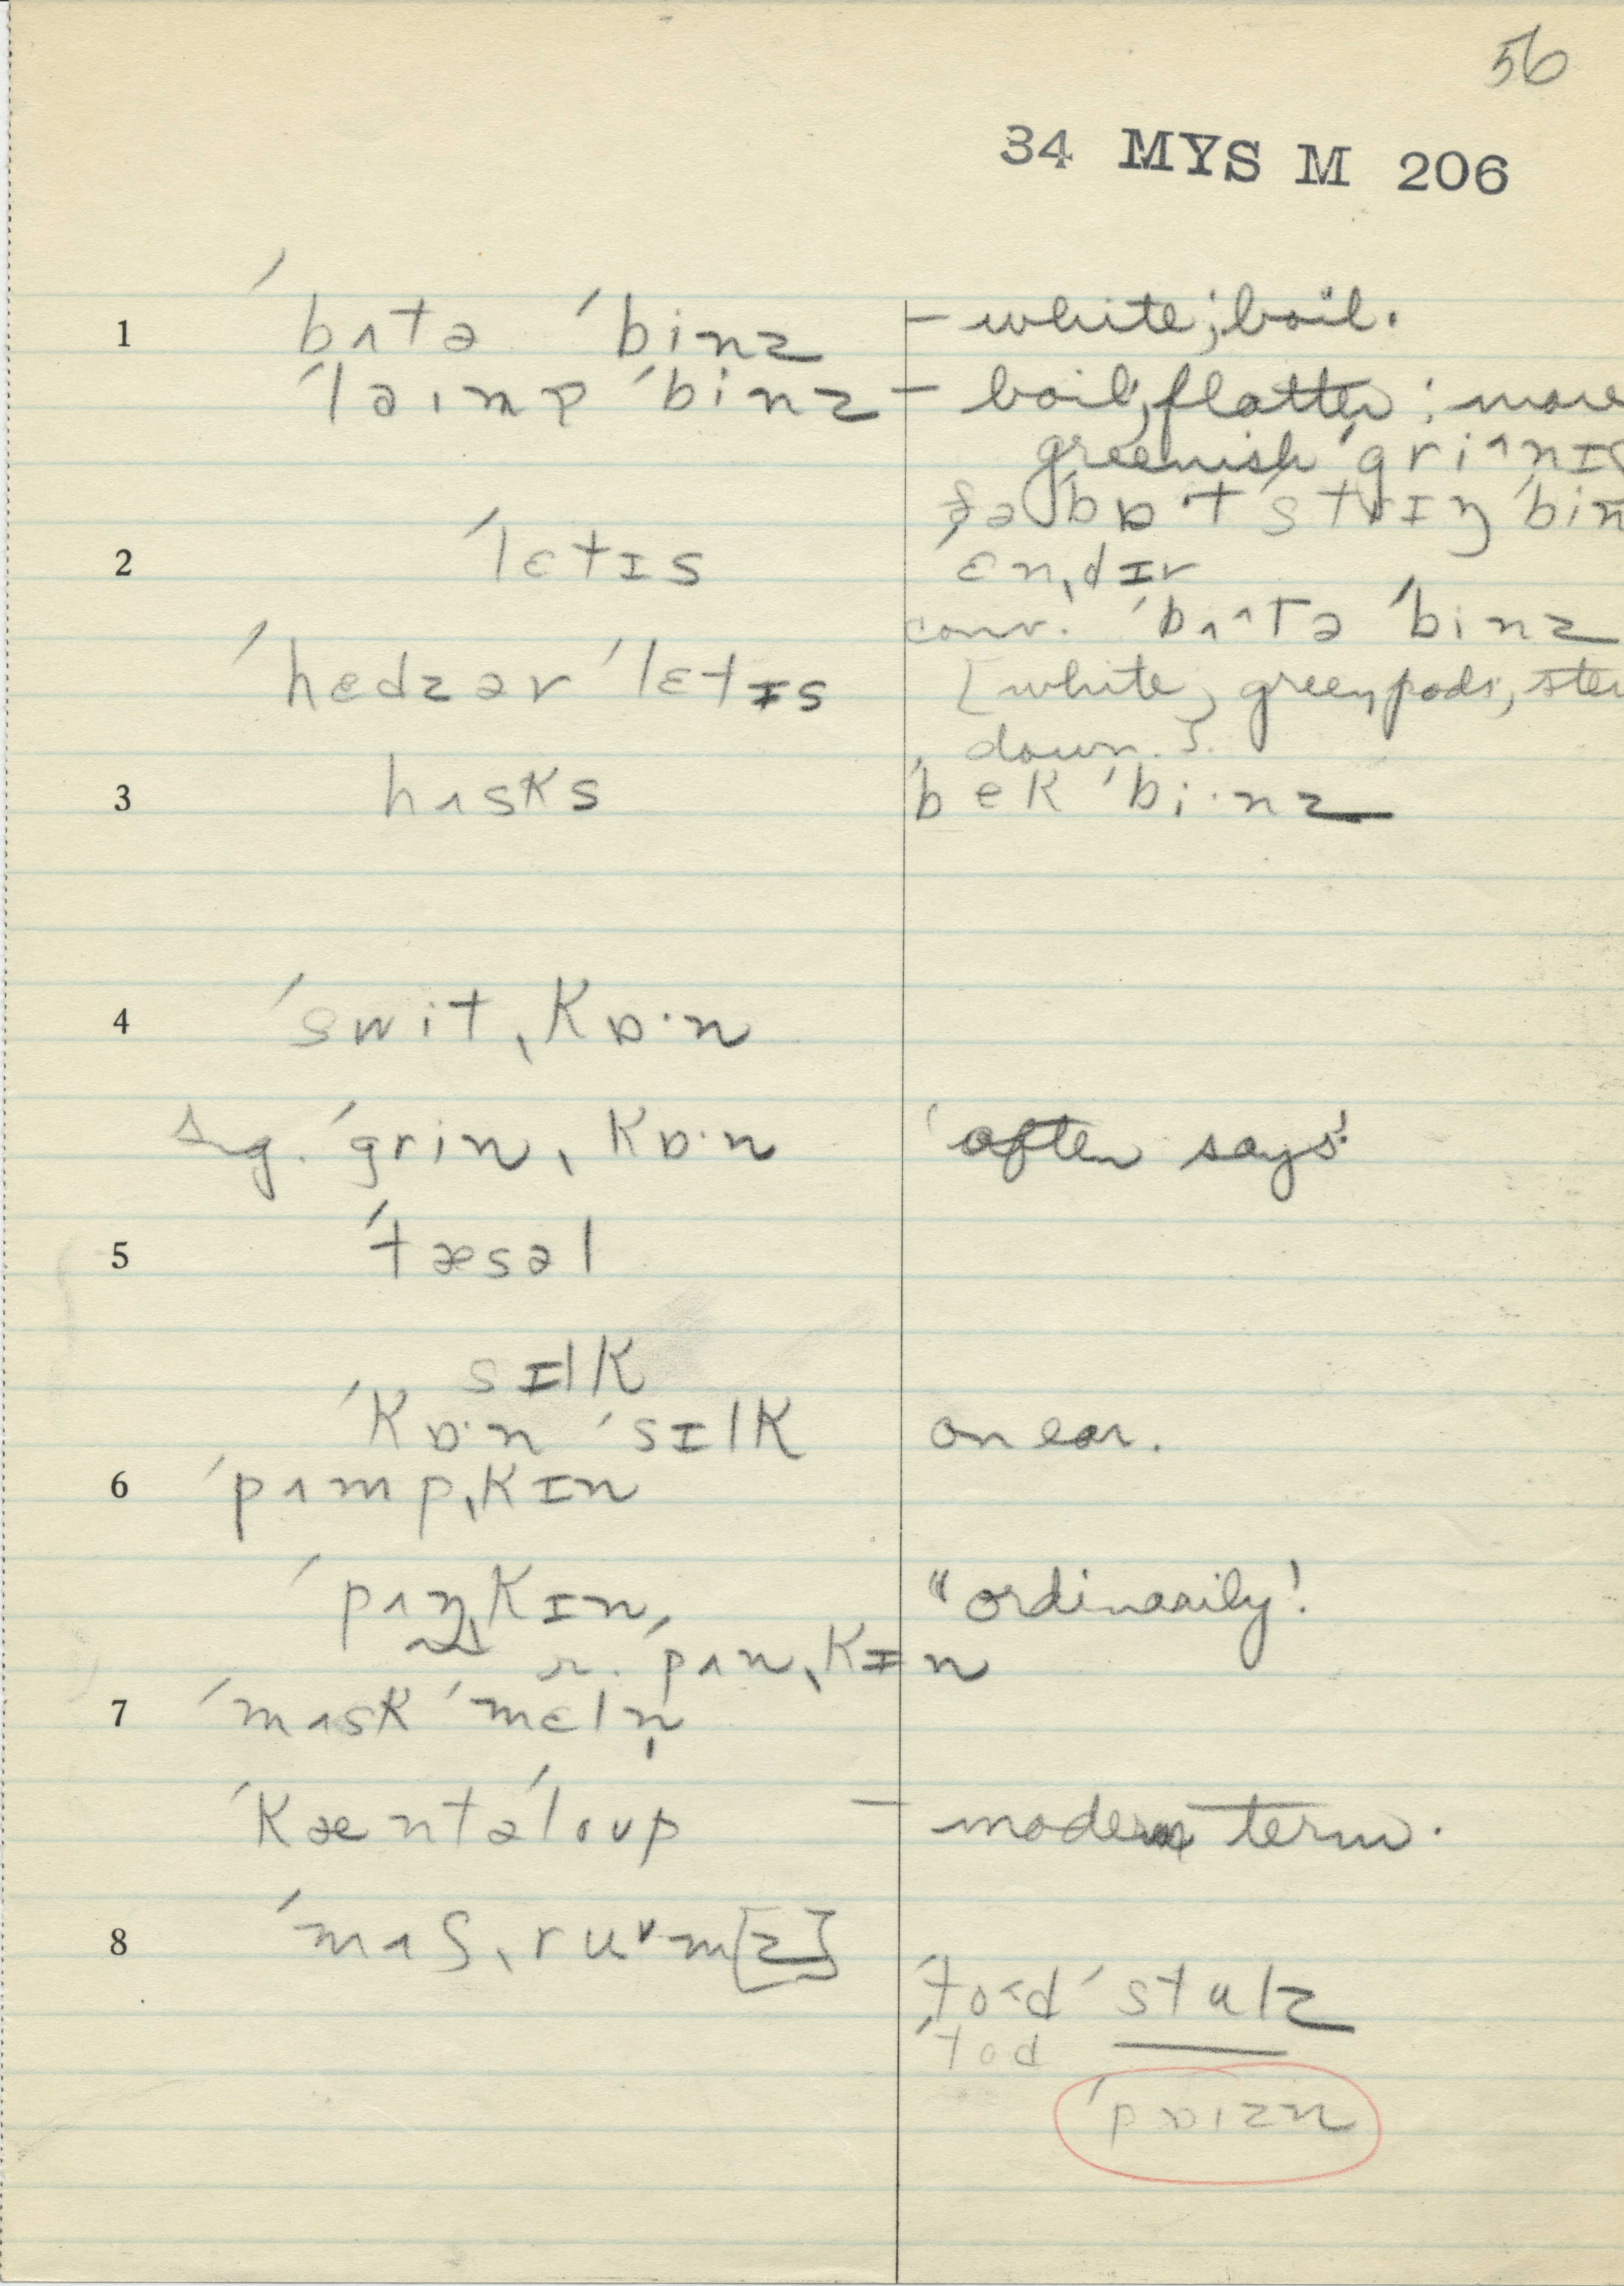 56
34 MYS M 206
1 ˈbʌtə ˈbinz – white; boil.
ˈlaɪmə ˈbinz – boil; flatter; more
greenish ˈgriʌnɪʃ
ʃəˈbɒt striŋ bin
2 ˈlɛtɪs ˈɛnˌdɪv
conv. ˈbʌtə ˈbinz
ˈhedzər ˈlɛtɪs [white, green pods, stew
down.].
3 hʌsks ˈbek ˈbi·nz
4 ˈswitˌkɒ·n
sug. ˈgrinˌkɒ·n 'often says'
5 ˈtæsəl
sɪlk
ˈkɒ·n ˈsɪlk on ear.
6 ˈpʌmpˌkɪn
ˈpʌŋkɪn, "ordinarily!
r. ˈpʌnˌkɪn
7 ˈmʌsk ˈmɛln̩
ˈkæntəˈloup – modern term.
8 ˈmʌʃˌruᵛm[z]
ˈto<d ˈstulz
ˈtod
ˈpɒɪzn